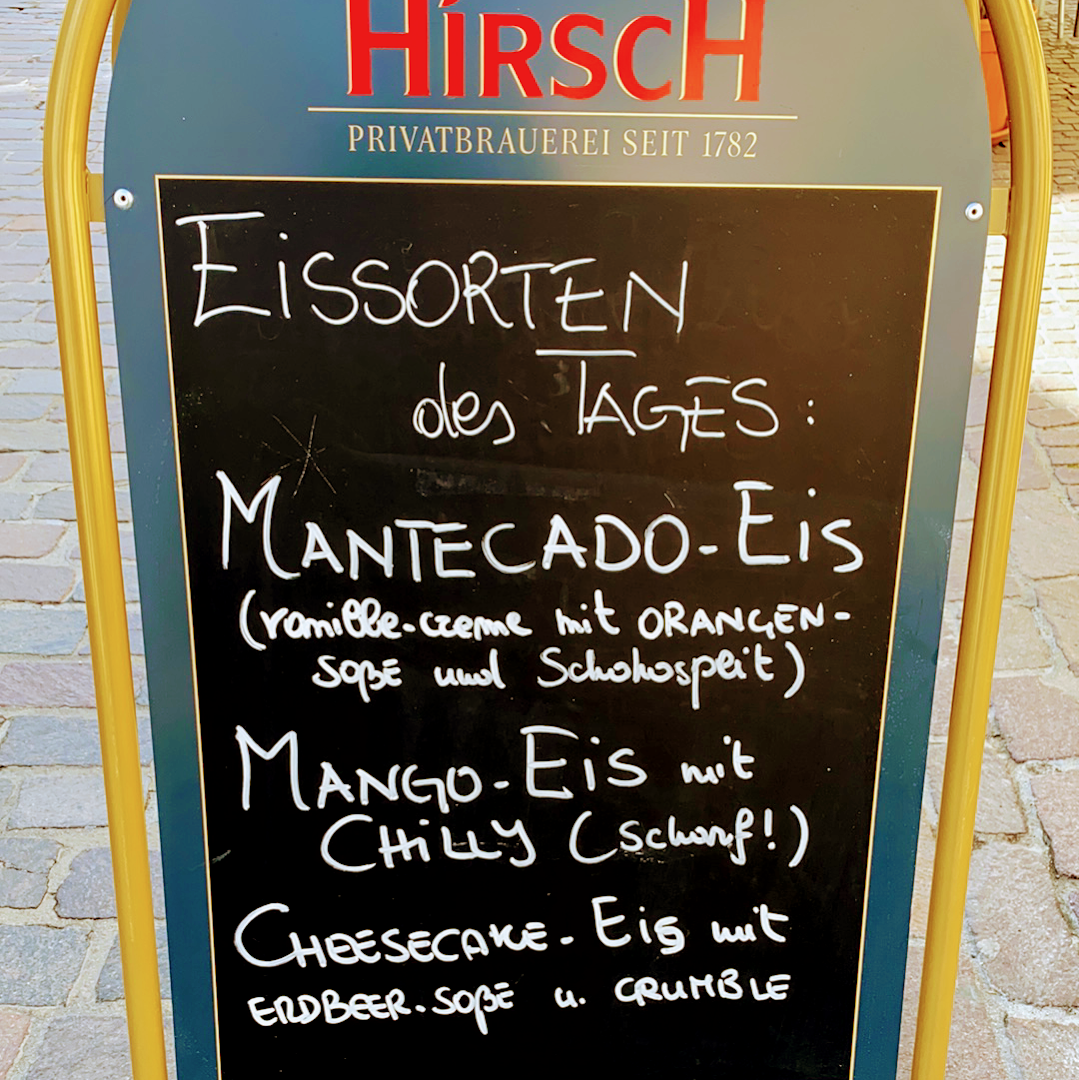 HIRSCH
PRIVATBRAUEREI SEIT 1782
EiSSORTEN
des TAGES:
MANTECADO-EiS
(vanille-creme mit ORANGEN-
SOßE und Schokosplit)
MANGO-EiS mit
CHiLLY (scharf!)
CHEESECAKE-EiS mit
ERDBEER-SOßE u. CRUMBLE